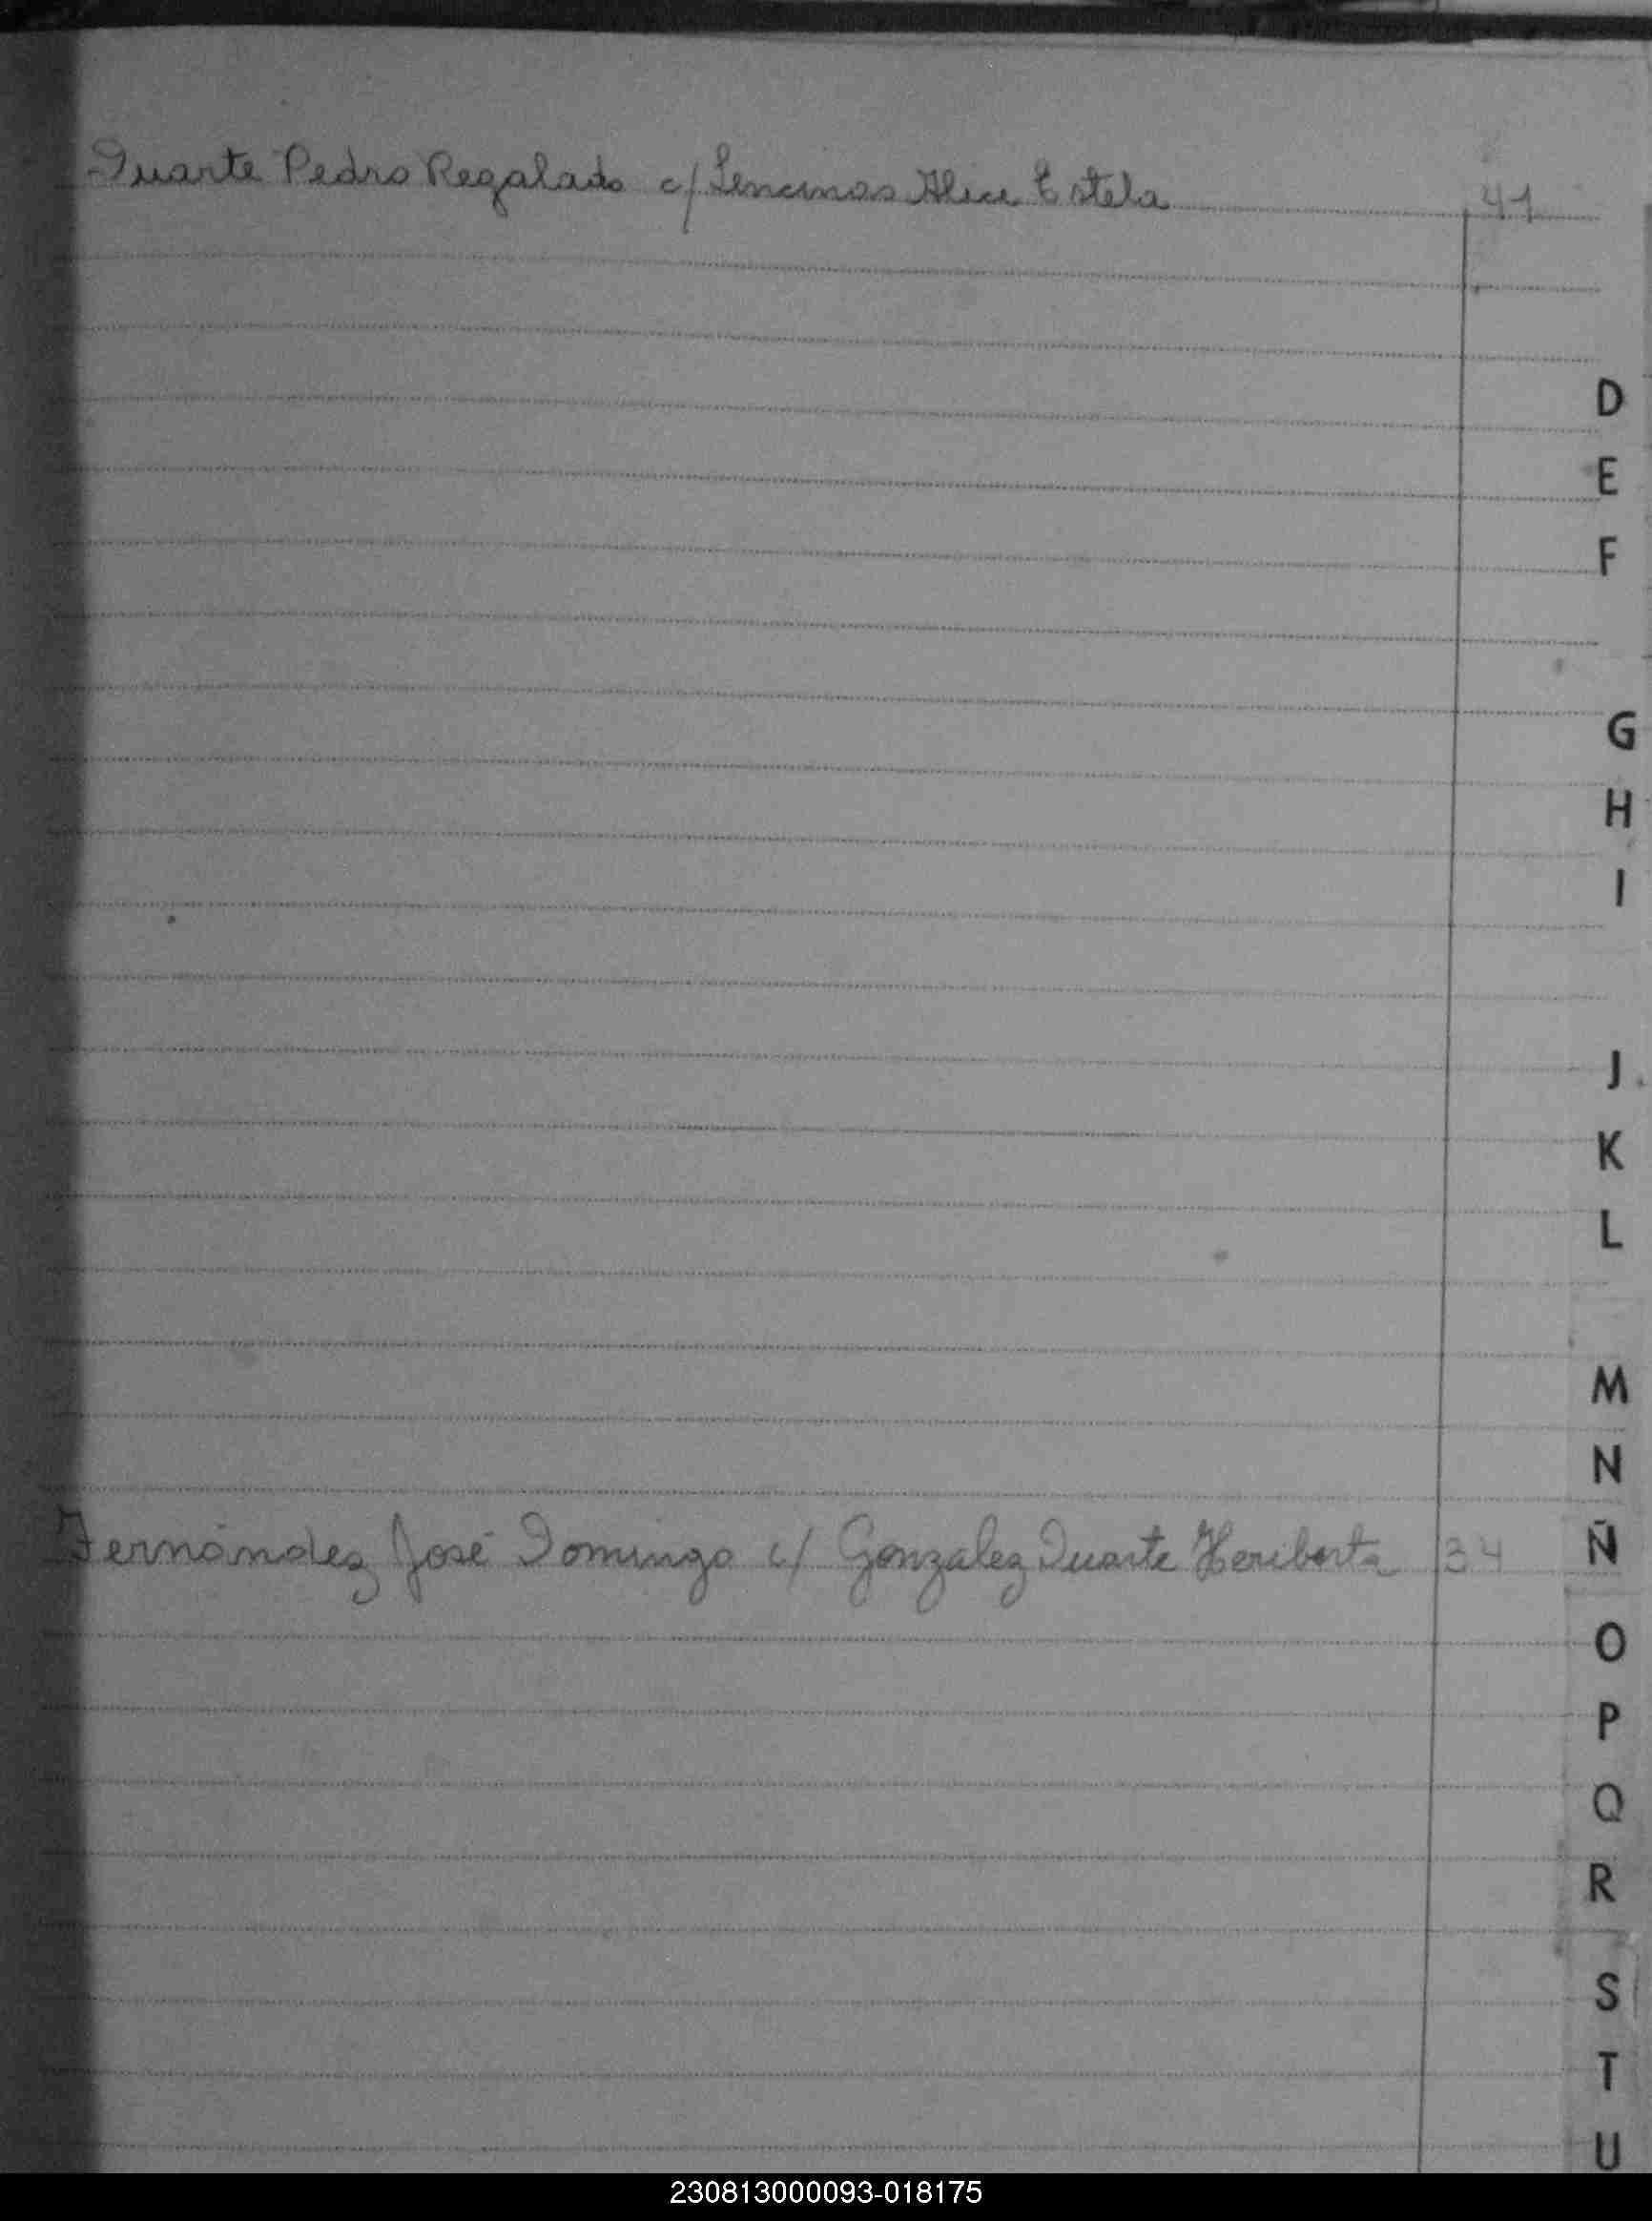 Duarte Pedro Regalado c/ Lencinas Alice Estela 41
D
E
F
G
H
I
J
K
L
M
N
Fernández José Domingo c/ Gonzalez Duarte Heriberta 34
Ñ
O
P
Q
R
S
T
U
230813000093-018175